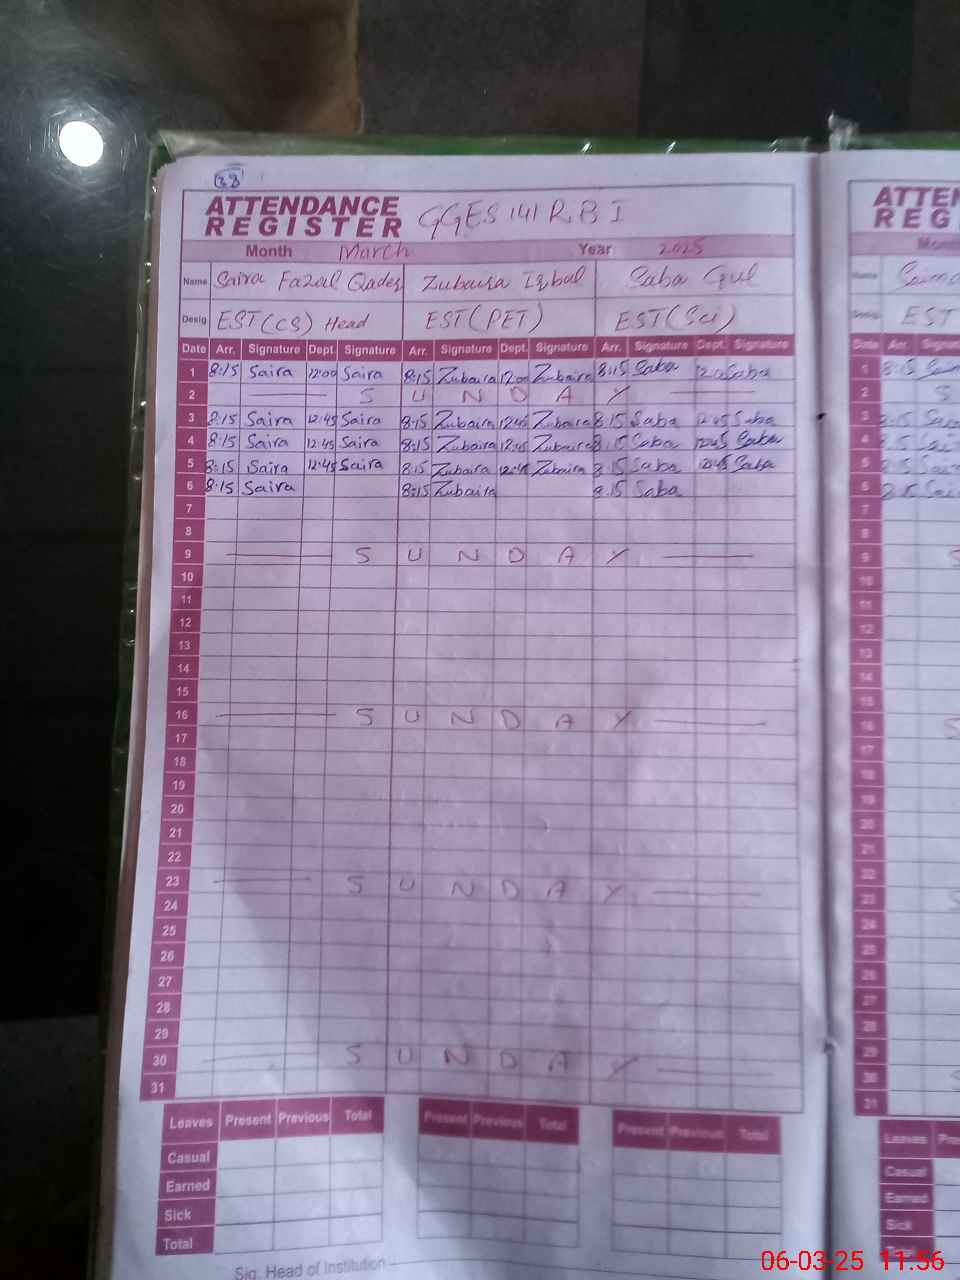 38
ATTENDANCE REGISTER GGES 141 R.B I
Month March Year 2025
Name Saira Fazal Qader Zubaira Iqbal Saba Gul
Desig. EST(CS) Head EST(PET) EST(Sci)
Date Arr. Signature Dept. Signature Arr. Signature Dept. Signature Arr. Signature Dept. Signature
1 8:15 Saira 12:00 Saira 8:15 Zubaira 12:00 Zubaira 8:15 Saba 12:00 Saba
2 S U N D A Y
3 8:15 Saira 12:45 Saira 8:15 Zubaira 12:45 Zubaira 8:15 Saba 12:45 Saba
4 8:15 Saira 12:45 Saira 8:15 Zubaira 12:45 Zubaira 8:15 Saba 12:45 Saba
5 8:15 Saira 12:45 Saira 8:15 Zubaira 12:45 Zubaira 8:15 Saba 12:45 Saba
6 8:15 Saira 8:15 Zubaira 8:15 Saba
7
8
9 S U N D A Y
10
11
12
13
14
15
16 S U N D A Y
17
18
19
20
21
22
23 S U N D A Y
24
25
26
27
28
29
30 S U N D A Y
31
Leaves Present Previous Total Present Previous Total Present Previous Total
Casual
Earned
Sick
Total
Sig. Head of Institution
ATTEN
REG
Name
Desig. EST
Date Arr.
1 8:15
2 S
3 8:15
4 8:15
5 8:15
6 8:15
7
8
9 S
10
11
12
13
14
15
16 S
17
18
19
20
21
22
23 S
24
25
26
27
28
29
30 S
31
Leaves
Casual
Earned
Sick
06-03-25 11:56